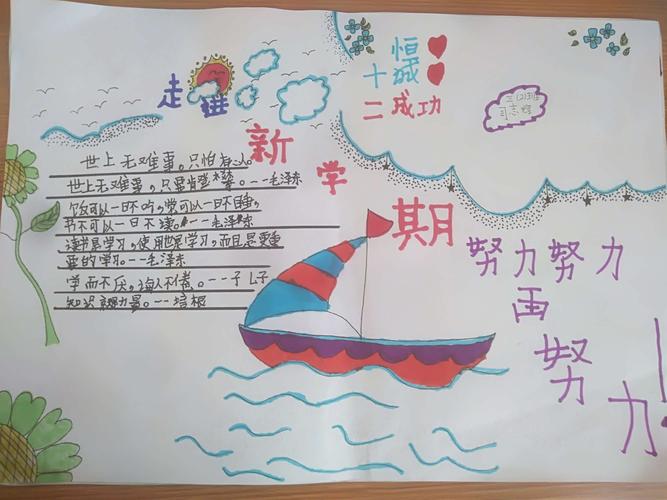 走进
新学期
恒
十诚
二成功
三(2)班
世上无难事。只怕有心人。
世上无难事,只要肯登攀。--毛泽东
饭可以一日不吃,觉可以一日不睡,
书不可以一日不读。--毛泽东
读书是学习,使用也是学习,而且是更重
要的学习。--毛泽东
学而不厌,诲人不倦。--孔子
知识就是力量。--培根
努力努力
再
努
力!